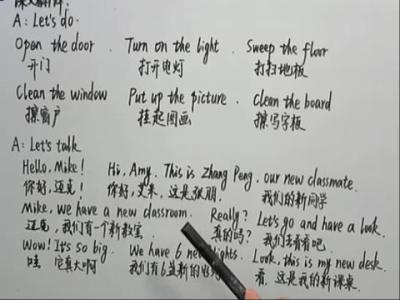 课文解析:
A: Let's do.
Open the door. Turn on the light. Sweep the floor
开门 打开电灯 打扫地板
Clean the window Put up the picture. Clean the board
擦窗户 挂起图画 擦写字板
A: Let's talk
Hello, Mike! Hi, Amy. This is Zhang Peng, our new classmate.
你好,迈克! 你好,艾米,这是张朋, 我们的新同学
Mike, we have a new classroom. Really? Let's go and have a look.
迈克,我们有一个新教室 真的吗? 我们去看看吧.
Wow! It's so big. We have 6 new lights. Look, this is my new desk.
哇 它真大啊 我们有6盏新的电灯 看,这是我的新课桌.